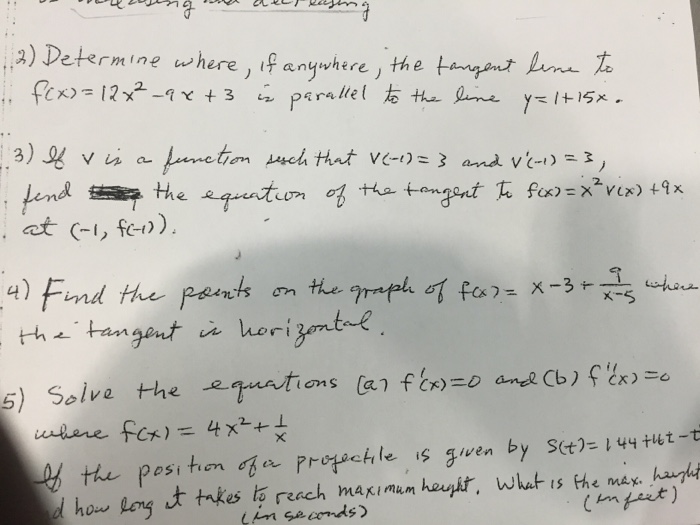 increasing and decreasing
2) Determine where, if anywhere, the tangent line to
f(x) = 12x² - 9x + 3 is parallel to the line y = 1 + 15x.
3) If v is a function such that v(-1) = 3 and v'(-1) = 3,
find the equation of the tangent to f(x) = x² v(x) + 9x
at (-1, f(-1)).
4) Find the points on the graph of f(x) = x - 3 + 9/(x-5) where
the tangent is horizontal.
5) Solve the equations (a) f'(x) = 0 and (b) f''(x) = 0
where f(x) = 4x² + 1/x
If the position of a projectile is given by S(t) = 144 + 16t - t
d how long it takes to reach maximum height. What is the max. height
(in seconds) (in feet)